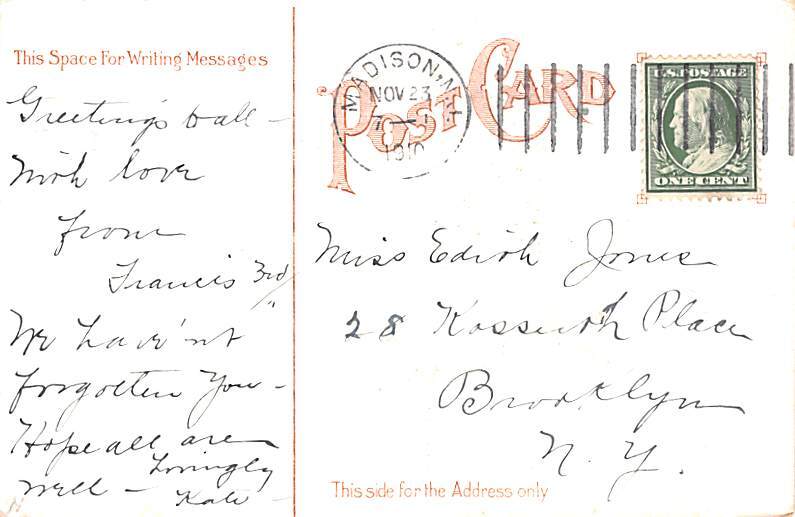 This Space For Writing Messages
Greetings to all –
With love
from
Francis 3rd
We have'nt
forgotten you –
Hope all are
well –
Lovingly
Kate
POST CARD
MADISON, N.J.
NOV 23
7 –
1910
U.S. POSTAGE
ONE CENT
Miss Edith Jones
28 Kossuth Place
Brooklyn
N. Y.
This side for the Address only